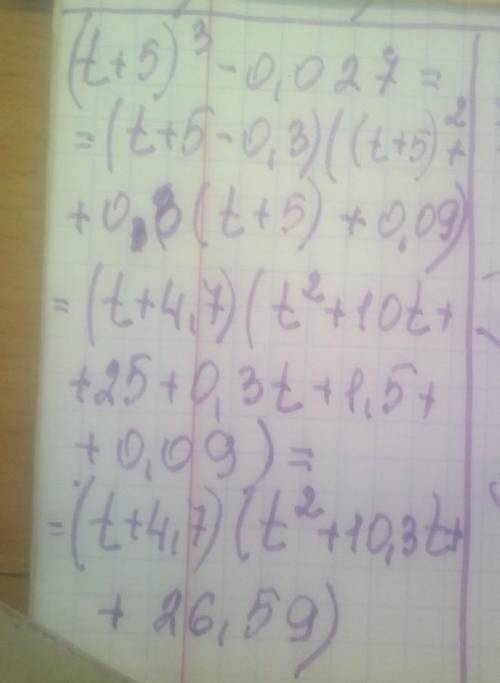 (t+5)³ - 0,027 =
= (t+5-0,3)((t+5)²+
+ 0,3(t+5) + 0,09)
= (t+4,7)(t²+10t+
+25+0,3t+1,5+
+0,09) =
= (t+4,7)(t²+10,3t+
+ 26,59)